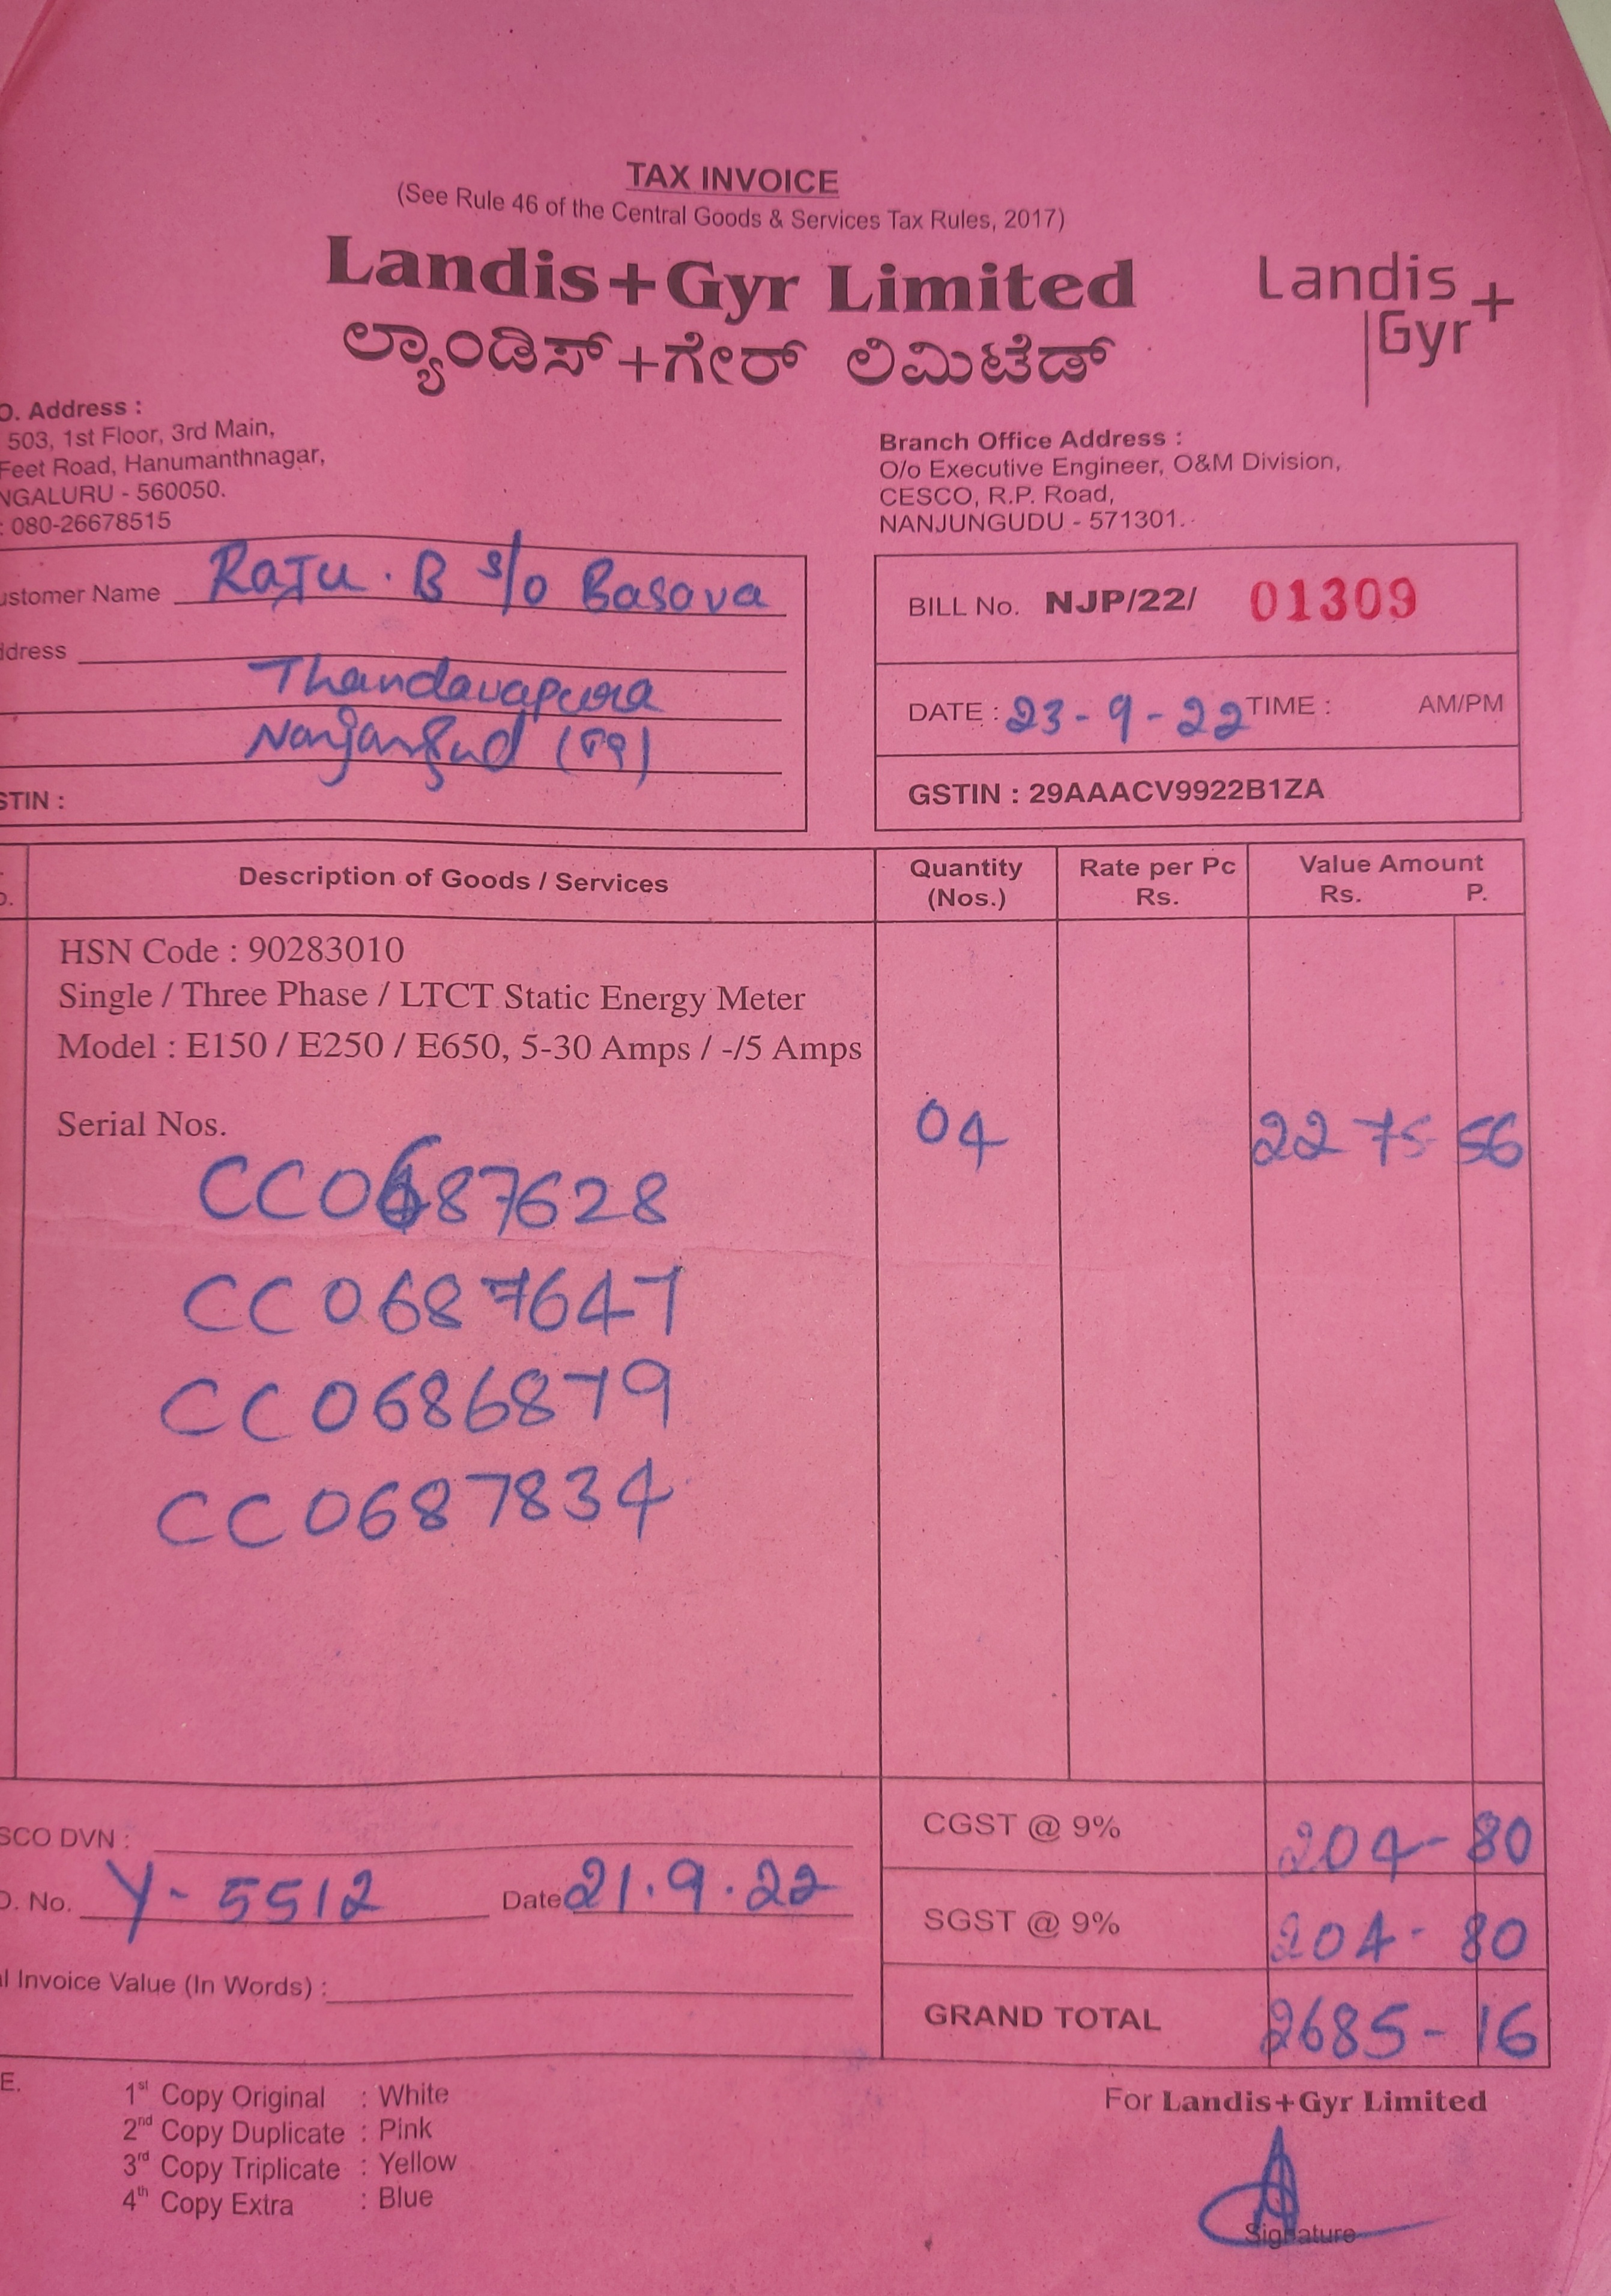 TAX INVOICE
(See Rule 46 of the Central Goods & Services Tax Rules, 2017)
Landis+Gyr Limited
ಲ್ಯಾಂಡಿಸ್+ಗೇರ್ ಲಿಮಿಟೆಡ್
Landis+
Gyr
O. Address :
503, 1st Floor, 3rd Main,
Feet Road, Hanumanthnagar,
NGALURU - 560050.
: 080-26678515
Branch Office Address :
O/o Executive Engineer, O&M Division,
CESCO, R.P. Road,
NANJUNGUDU - 571301.
ustomer Name Raju . B s/o Basava
ddress
Thandavapura
Nanjangud (TQ)
STIN :
BILL No. NJP/22/ 01309
DATE : 23-9-22 TIME : AM/PM
GSTIN : 29AAACV9922B1ZA
Description of Goods / Services
Quantity (Nos.)
Rate per Pc Rs.
Value Amount Rs. P.
HSN Code : 90283010
Single / Three Phase / LTCT Static Energy Meter
Model : E150 / E250 / E650, 5-30 Amps / -/5 Amps
Serial Nos. 04 2275 56
CC0687628
CC0687647
CC0686879
CC0687834
SCO DVN :
O. No. Y-5512 Date 21.9.22
l Invoice Value (In Words) :
CGST @ 9% 204-80
SGST @ 9% 204-80
GRAND TOTAL 2685-16
E.
1st Copy Original : White
2nd Copy Duplicate : Pink
3rd Copy Triplicate : Yellow
4th Copy Extra : Blue
For Landis+Gyr Limited
Signature